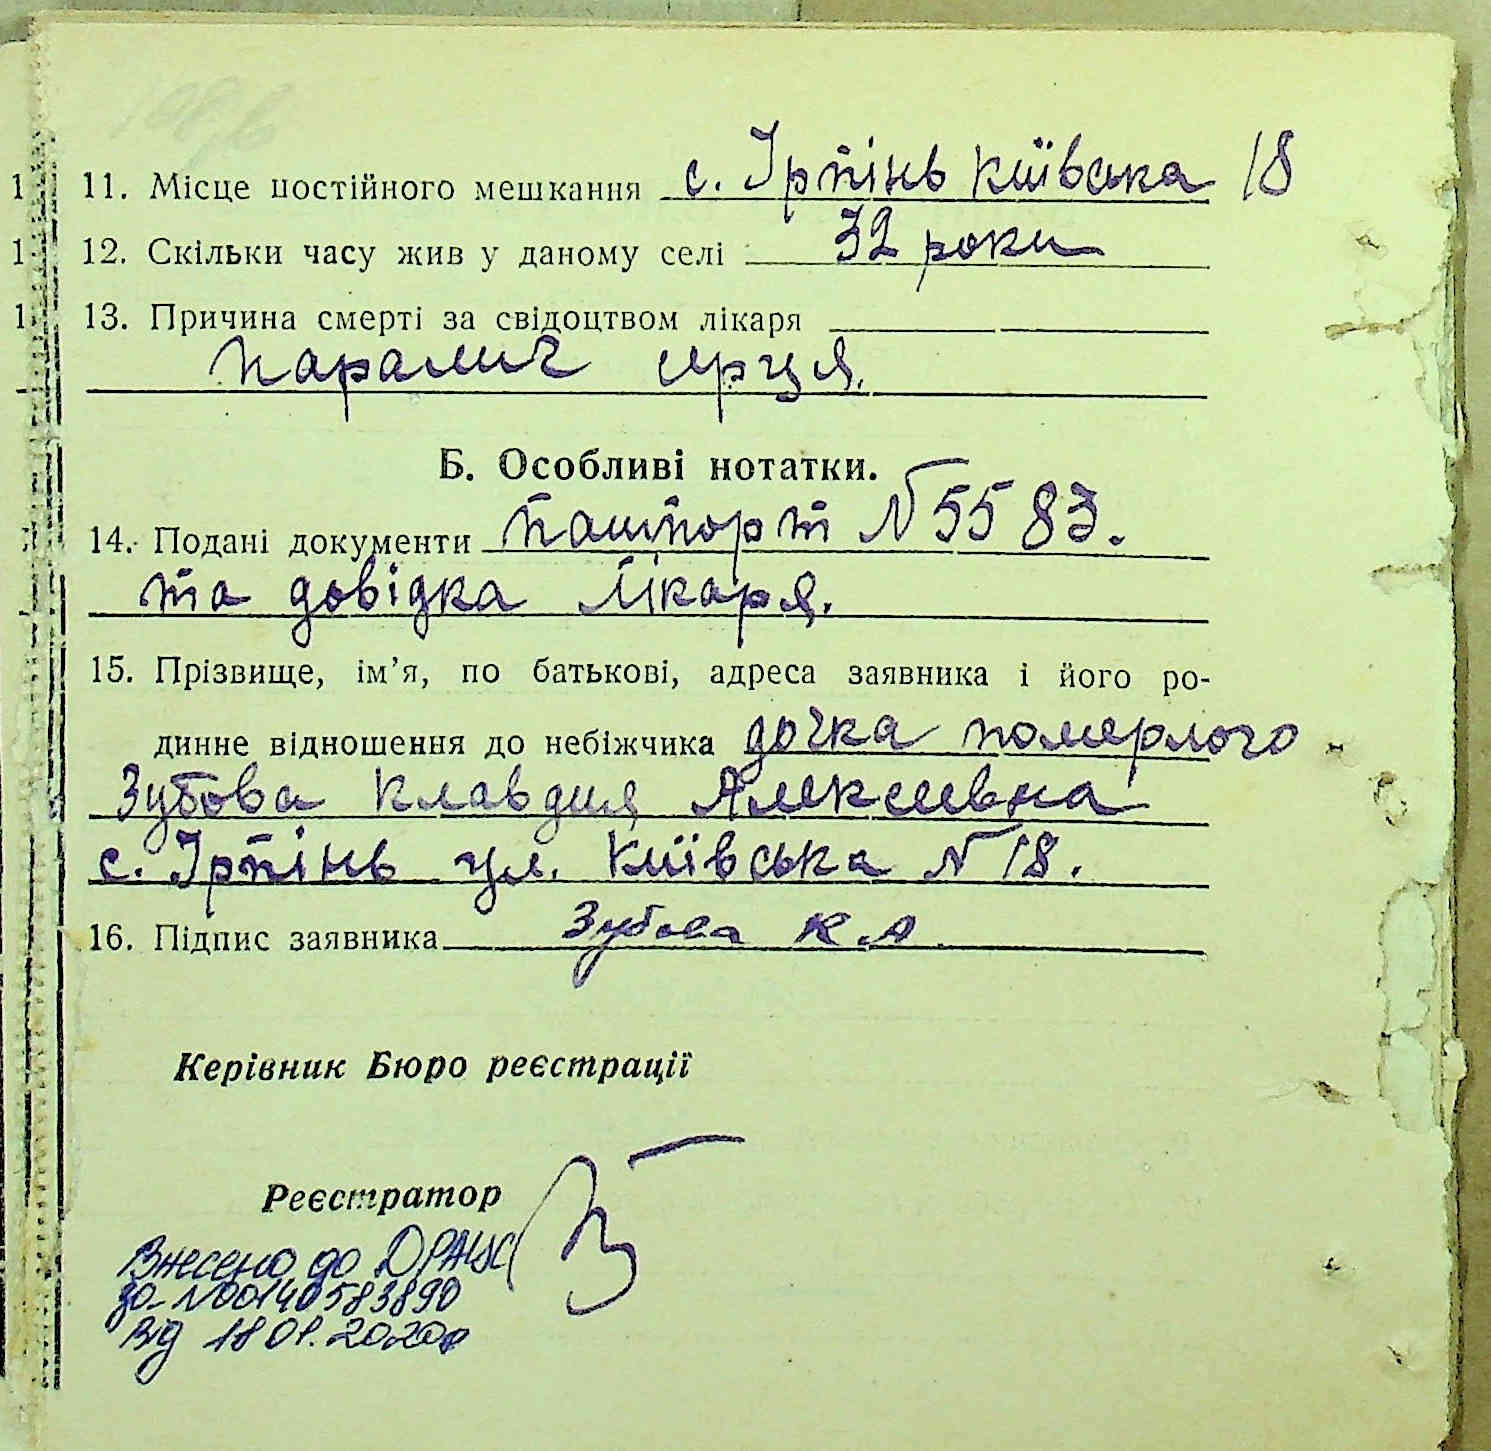 11. Місце постійного мешкання с. Ірпінь Київська 18
12. Скільки часу жив у даному селі 32 роки
13. Причина смерті за свідоцтвом лікаря
параліч серця.
Б. Особливі нотатки.
14. Подані документи пашпорт N 5583.
та довідка лікаря.
15. Прізвище, ім’я, по батькові, адреса заявника і його ро-
динне відношення до небіжчика дочка померлого
Зубова Клавдия Алексеевна
с. Ірпінь ул. Київська N 18.
16. Підпис заявника Зубова К.А
Керівник Бюро реєстрації
Реєстратор
Внесено до ДРАЦС
за N00140583890
від 18 01. 2020р